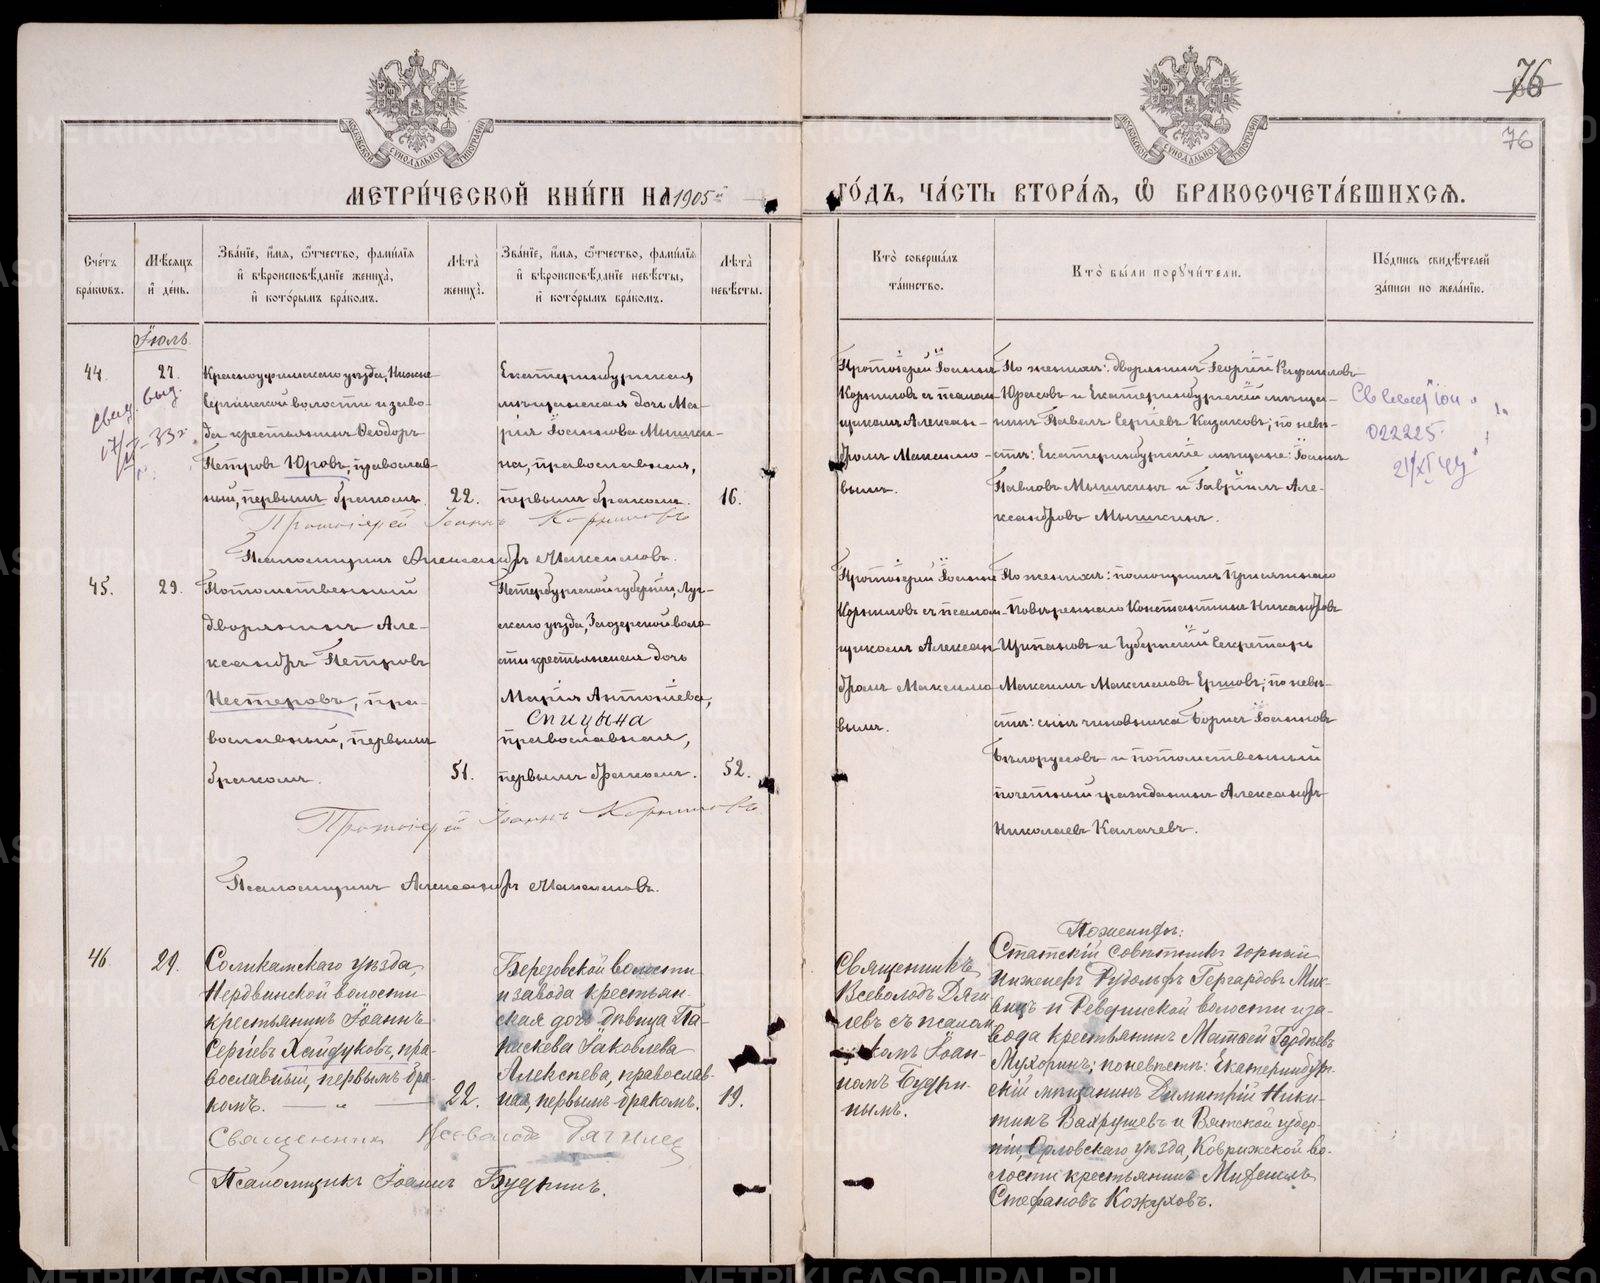 76
76
МЕТРИ́ЧЕСКОЙ КНИ́ГИ НА 1905й
ГО́ДЪ, ЧА́СТЬ ВТОРА́Я, Ѡ БРАКОСОЧЕТА́ВШИХСѦ.
Сче́тъ бра́кѡвъ.
Мѣ́сяцъ и҆ де́нь.
Зва́нїе, и҆́мя, ѻ҆́тчество, фами́лїя
и҆ вѣроисповѣ́данїе жениха̀,
и҆ кото́рымъ бра́комъ.
Лѣ́та жениха̀.
Зва́нїе, и҆́мя, ѻ҆́тчество, фами́лїя
и҆ вѣроисповѣ́данїе невѣ́сты,
и҆ кото́рымъ бра́комъ.
Лѣ́та невѣ́сты.
Кто̀ соверша́лъ
та́инство.
Кто̀ бы́ли поручи́тели.
По́дпись свидѣ́телей
за́писи по жела́нїю.
Іюль
44.
27.
Красноуфимскаго уѣзда, Нижне
Сергинской волости и заво-
да крестьянинъ Ѳеодоръ
Петровъ Юровъ, православ-
ный, первымъ бракомъ.
22.
Екатеринбургская
мѣщанская дочь Ма-
рія Іоаннова Мышки-
на, православная,
первымъ бракомъ.
16.
Протоіерей Іоаннъ
Корниловъ съ псалом-
щикомъ Алексан-
дромъ Максимо-
вымъ.
По женихѣ: дворянинъ Георгій Рафаиловъ
Юрасовъ и Екатеринбургскій мѣща-
нинъ Павелъ Сергѣевъ Казаковъ; по невѣ-
стѣ: Екатеринбургскіе мѣщане: Іоаннъ
Павловъ Мышкинъ и Гавріилъ Але-
ксандровъ Мышкинъ.
022225
Протоіерей Іоаннъ Корниловъ
Псаломщикъ Александръ Максимовъ.
45.
29.
Потомственный
дворянинъ Але-
ксандръ Петровъ
Нестеровъ, пра-
вославный, первымъ
бракомъ.
51.
Петербургской губерніи, Луж-
скаго уѣзда, Заозерской воло
сти крестьянская дочь
Марія Антоніева,
Спицына
православная,
первымъ бракомъ.
52.
Протоіерей Іоаннъ
Корниловъ съ псалом-
щикомъ Алексан
дромъ Максимо
вымъ.
По женихѣ: помощникъ Присяжнаго
Повѣреннаго Константинъ Никаноровъ
Щипановъ и Губернскій Секретарь
Максимъ Максимовъ Ершовъ; по невѣ-
стѣ: сынъ чиновника Борисъ Іоанновъ
Бѣлоруссовъ и потомственный
почетный гражданинъ Александръ
Николаевъ Калачевъ.
Протоіерей Іоаннъ Корниловъ
Псаломщикъ Александръ Максимовъ.
46.
29.
Соликамскаго уѣзда,
Нердвинской волости
крестьянинъ Іоаннъ
Сергіевъ Хайдуковъ, пра-
вославный, первымъ бра-
комъ.
22.
Березовской волости
и завода крестьян-
ская дочь дѣвица Па-
раскева Іаковлева
Алексѣева, православ-
ная, первымъ бракомъ.
19.
Священникъ
Всеволодъ Дяги
левъ съ псалом
щикомъ Іоан-
номъ Будри-
нымъ.
По женихѣ:
Статскій совѣтникъ горный
инженеръ Рудольфъ Гергардовъ Мик-
вицъ и Ревдинской волости и за-
вода крестьянинъ Матвѣй Гордѣевъ
Мухоринъ; по невѣстѣ: Екатеринбург-
скій мѣщанинъ Димитрій Ники-
тинъ Вахрушевъ и Вятской губер-
ніи, Орловскаго уѣзда, Коврижской во-
лости крестьянинъ Михаилъ
Стефановъ Кожуховъ.
Священникъ Всеволодъ Дягилев
Псаломщикъ Іоаннъ Будринъ.